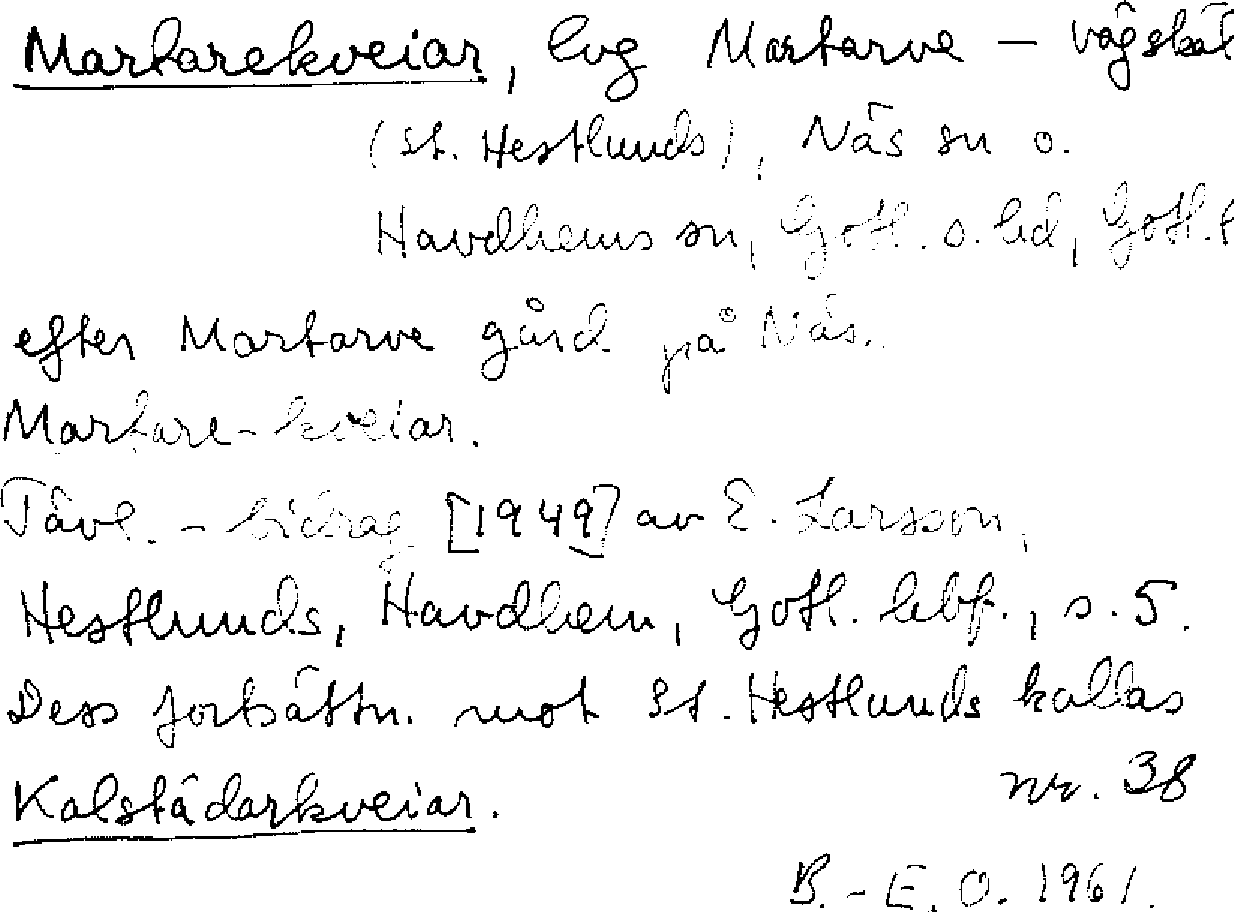 Martarekveiar, lvg Martarve – vägskäl
(St. Hestlunds), Näs sn o.
Havdhems sn, Gotl. s. hd, Gotl. l
efter Martarve gård på Näs.
Martare-kveiar.
Tävl. - bidrag [1949] av E. Larsson,
Hestlunds, Havdhem, Gotl. hbf., s. 5.
Dess fortsättn. mot St. Hestlunds kallas
Kalstädarkveiar.
nr. 38
B.-E. O. 1961.